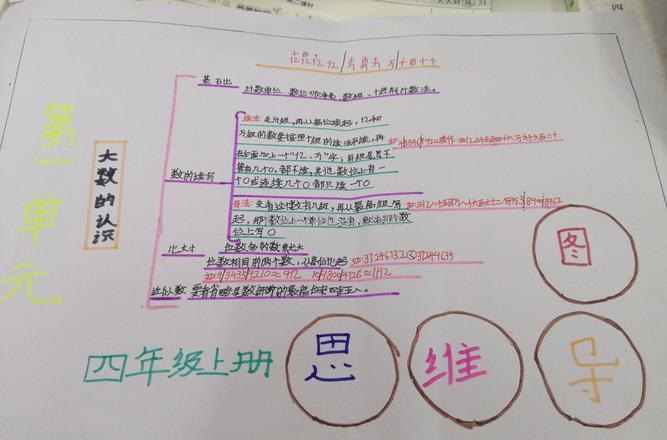 十百千
亿亿亿亿/千百十万/千百十个
第一单元
大数的认识
基石出
计数单位、数位顺序表、数级、十进制计数法。
数的读写
读法:先分级,再从高位读起,亿和
万级的数要按照个级的读法来读,再
在后面加上一个"亿、万"字;每级末尾不
管有几个0,都不读,其他数位上有一
个0或连续几个0都只读一个0
写法:先看这个数有几级,再从最高级写
起,哪个数位上一个单位也没有,就在那个数
位上写0
比大小
位数多的数就大
位数相同的两个数,从高位比起
如:37246732<37249635
近似数
要看省略尾数部分的最高位来四舍五入。
四年级上册
思
维
导
图